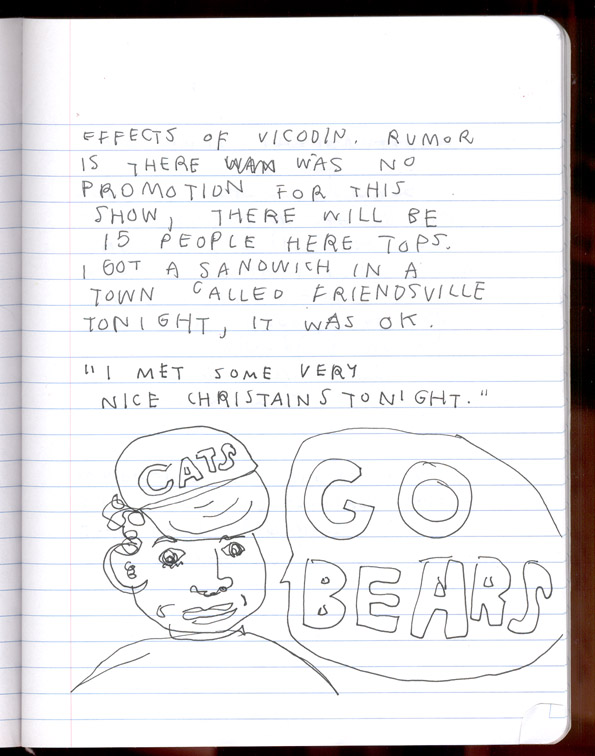 EFFECTS OF VICODIN. RUMOR
IS THERE WAS NO
PROMOTION FOR THIS
SHOW, THERE WILL BE
15 PEOPLE HERE TOPS.
I GOT A SANDWICH IN A
TOWN CALLED FRIENDSVILLE
TONIGHT, IT WAS OK.
"I MET SOME VERY
NICE CHRISTAINS TONIGHT."
CATS
GO
BEARS